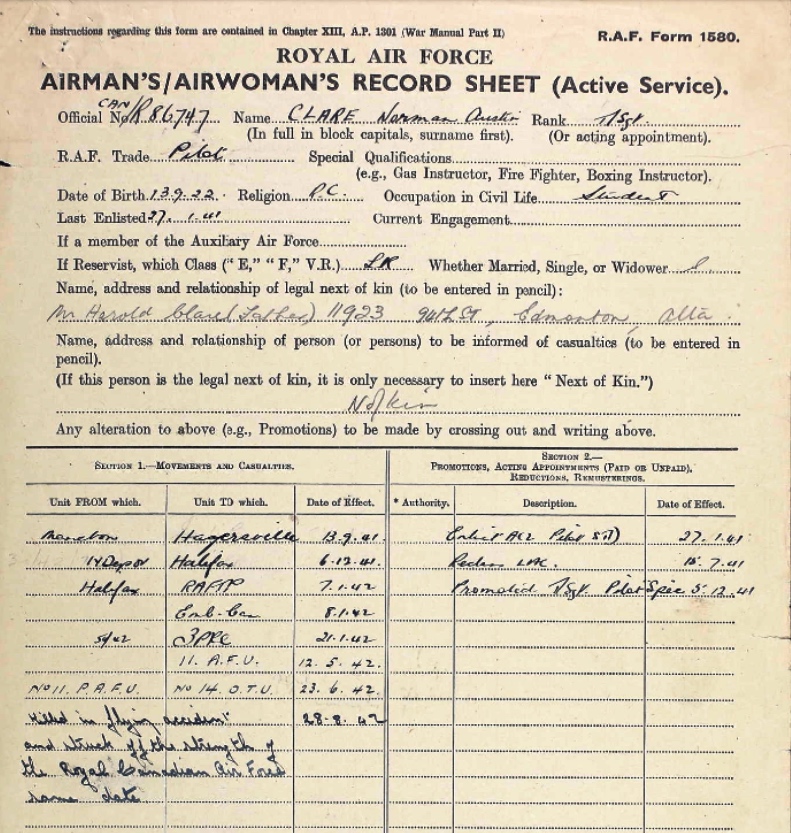 The instructions regarding this form are contained in Chapter XIII, A.P. 1301 (War Manual Part II)
R.A.F. Form 1580.
ROYAL AIR FORCE
AIRMAN'S/AIRWOMAN'S RECORD SHEET (Active Service).
Official No CAN/R86747 Name CLARE Norman Austin Rank T/Sgt.
(In full in block capitals, surname first). (Or acting appointment).
R.A.F. Trade Pilot Special Qualifications
(e.g., Gas Instructor, Fire Fighter, Boxing Instructor).
Date of Birth 13.9.22. Religion R.C. Occupation in Civil Life Student
Last Enlisted 27.1.41 Current Engagement
If a member of the Auxiliary Air Force
If Reservist, which Class ("E," "F," V.R.) SR Whether Married, Single, or Widower S.
Name, address and relationship of legal next of kin (to be entered in pencil):
Mr Harold Clare (Father) 11923 94th St, Edmonton, Alta.
Name, address and relationship of person (or persons) to be informed of casualties (to be entered in
pencil).
(If this person is the legal next of kin, it is only necessary to insert here "Next of Kin.")
N of kin
Any alteration to above (e.g., Promotions) to be made by crossing out and writing above.
SECTION 1.—MOVEMENTS AND CASUALTIES.
SECTION 2.—
PROMOTIONS, ACTING APPOINTMENTS (PAID OR UNPAID),
REDUCTIONS, REMUSTERINGS.
Unit FROM which. Unit TO which. Date of Effect. * Authority. Description. Date of Effect.
Hagersville 13.9.41. Enlist AC2 Pilot 27.1.41
Halifax 6.12.41. LAC. 15.7.41
Halifax RAFTP 7.1.42 Promoted T/Sgt. Pilot Spec 5.12.41
Emb-Can 8.1.42
3PRC 21.1.42
11. A.F.U. 12.5.42.
No 11. P.A.F.U. No 14. O.T.U. 23.6.42.
Killed in flying accident 28.8.42
and struck off the strength of
the Royal Canadian Air Force
same date